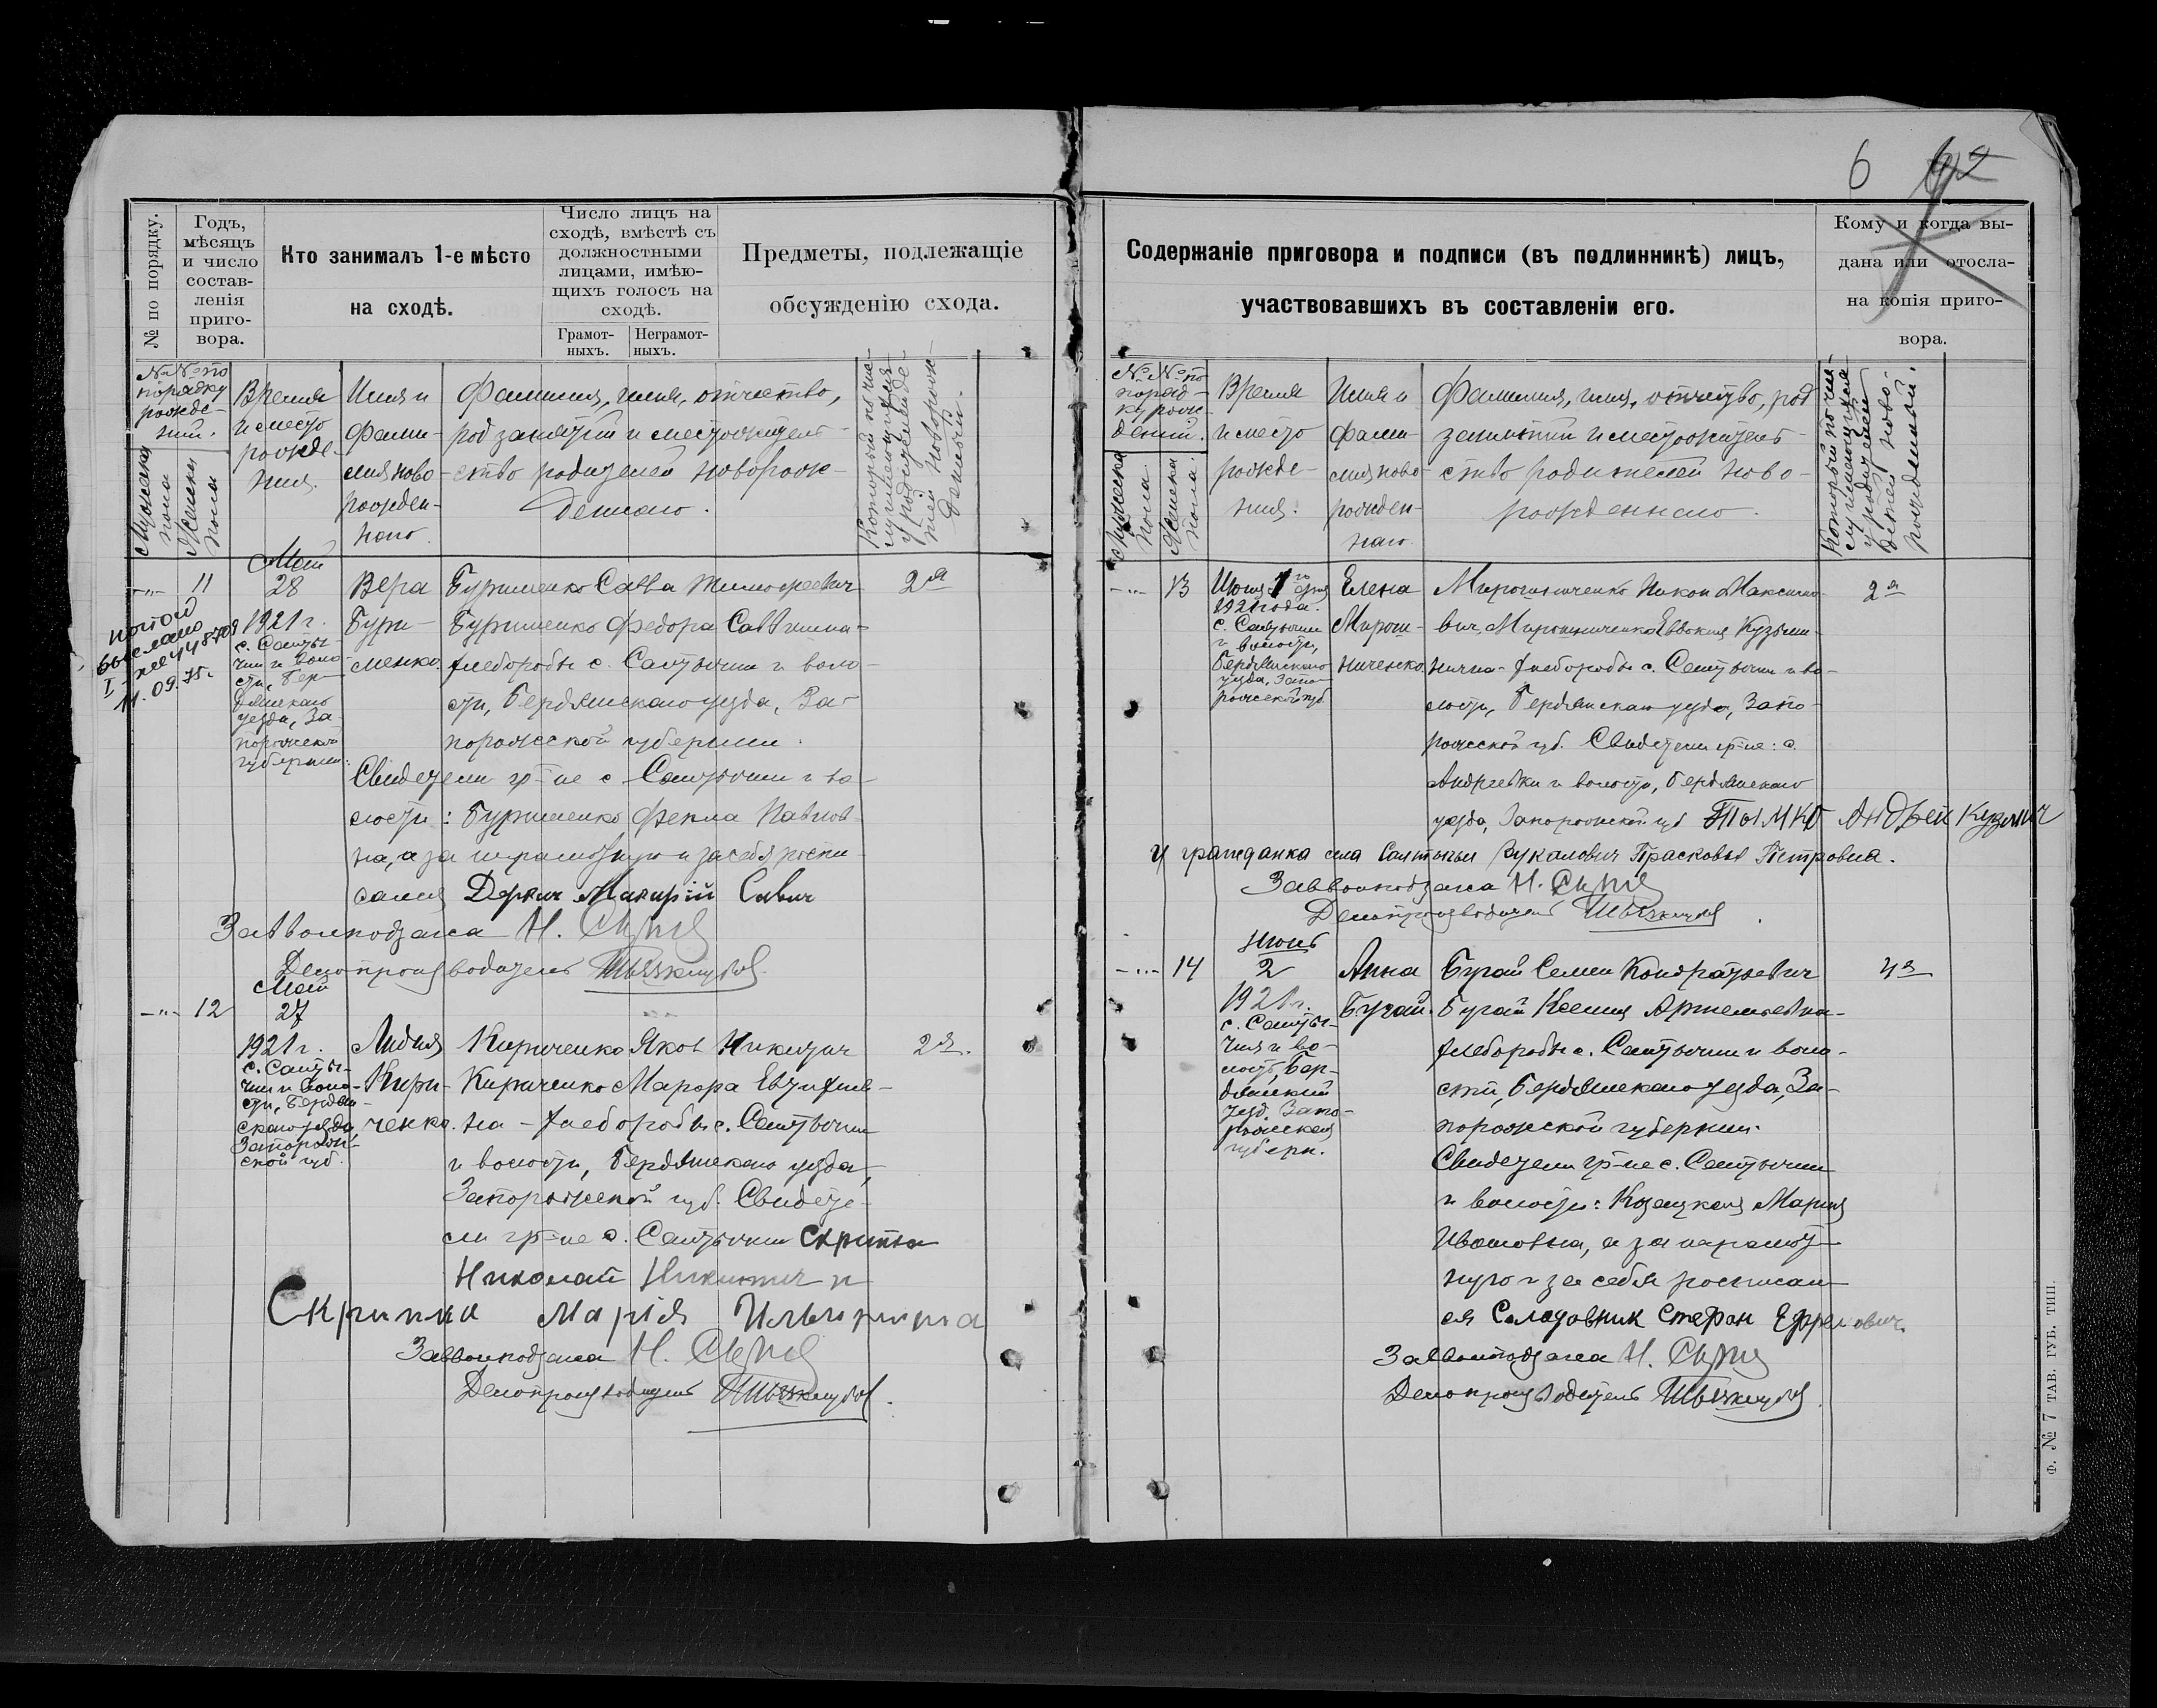 6 62
№ по порядку.
Годъ,
мѣсяцъ
и число
состав-
ленія
приго-
вора.
Кто занималъ 1-е мѣсто
на сходѣ.
Число лицъ на
сходѣ, вмѣстѣ съ
должностными
лицами, имѣю-
щихъ голосъ на
сходѣ.
Грамот-
ныхъ.
Неграмот-
ныхъ.
Предметы, подлежащіе
обсужденію схода.
№№ по
порядку
рожде-
ний.
Мужеска
пола
Женска
пола
Время
и место
рожде-
ния.
Имя и
фами-
лия ново-
рожден-
ного.
Фамилия, имя, отчество,
род занятий и местожитель-
ство родителей новорож-
денного.
Который по чис-
лу имеющихся
у родителей де-
тей новорож-
денный.
-„- 11
Май
28
1921 г.
с. Салты-
чии и воло-
сти, Бер-
дянскаго
уезда, За-
порожской
губернии.
выслано
11.09.75г.
Вера
Бури-
менко.
Буримменко Савва Тимофеевич
Буримменко Федора Саввишна-
хлеборобы с. Салтычии и воло-
сти, Бердянскаго уезда, За-
порожской губернии.
2я
Свидетели гр-не с Салтычии и во-
лости: Буримменко Фекла Павлов-
на, а за неграмотную и за себя роспи-
сался Деркич Макирій Савич
Завволподзаса Н.
Делопроизводитель
-„- 12
Май
27
1921 г.
с. Салты-
чии и воло-
сти, Бердян-
скаго уезда
Запорож-
ской губ.
Лидия
Кири-
ченко.
Кириченко Яков Никитич
Кириченко Марфа Евтифиев-
на - хлеборобы с. Салтычии
и волости, Бердянскаго уезда,
Запорожской губ. Свидете-
ли гр-не с. Салтычии Скрипка
Николай Никитич и
Скрипка Марія
2я.
Завволподзаса Н.
Делопроизводитель
Содержаніе приговора и подписи (въ подлинникѣ) лицъ,
участвовавшихъ въ составленіи его.
Кому и когда вы-
дана или отосла-
на копія приго-
вора.
№№ по
поряд-
ку рож-
дений.
Мужеска
пола
Женска
пола.
Время
и место
рожде-
ния.
Имя и
фами-
лия ново-
рожден-
наго.
Фамилия, имя, отчество, род
занятий и местожитель-
ство родителей ново-
рожденнаго.
Который по чис-
лу имеющихся
у родителей
детей ново-
рожденной.
-„- 13
Июня 1го дня
1921 года.
с. Салтычии
и волости,
Бердянскаго
уезда, Запо-
рожской губ.
Елена
Мирош-
ниченко.
Мирошниченко Никон Максимо-
вич, Мирошниченко Евдокия Кузьми-
нична - хлеборобы с. Салтычии и во-
лости, Бердянскаго уезда, Запо-
рожской губ. Свидетели гр-не: с.
Андреевки и волости, Бердянскаго
уезда, Запорожской губ Тымко Андрей Кузмич
и гражданка села Салтычьи Вукалович Прасковья Петровна.
2я
Завволподзаса Н.
Делопроизводитель
-„- 14
Июнь
2
1921 г.
с. Салты-
чия и во-
лость, Бер-
дянский
уезд, Запо-
рожская
губерн.
Анна
Бугай.
Бугай Семен Кондратьевич
Бугай Ксения Артемьевна-
хлеборобы с. Салтычии и воло-
сти, Бердянскаго уезда, За-
порожской губернии.
Свидетели гр-не с. Салтычии
и волости: Козацкая Мария
Ивановна, а за неграмот-
ную и за себя росписал-
ся Сладовник Стефан Ефремович.
4я
Завволподзаса Н.
Делопроизводитель
Ф. № 7 ТАВ. ГУБ. ТИП.